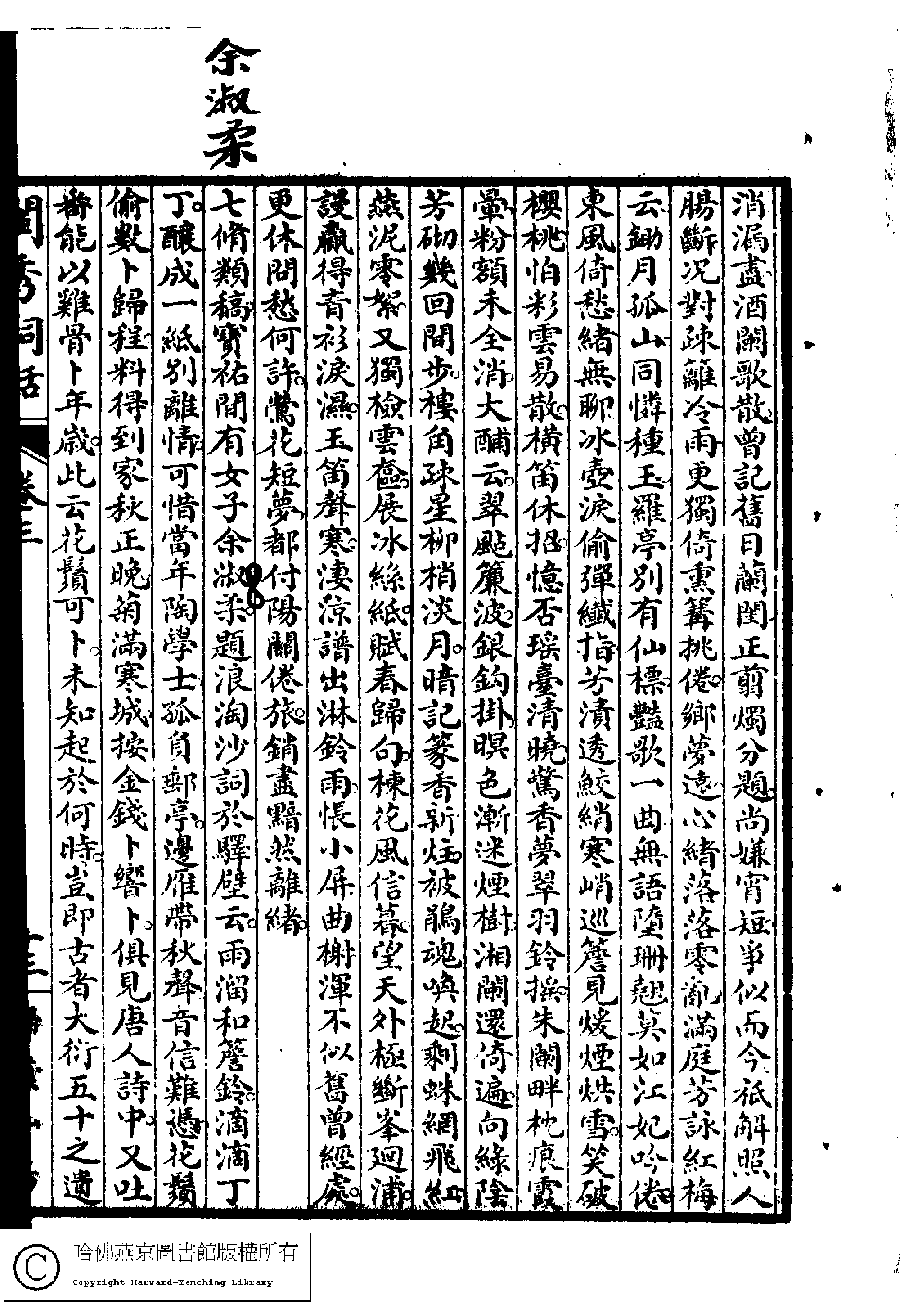 余淑柔
消漏盡酒闌歌散曾記舊日蘭閨正翦燭分題尚嫌宵短爭似而今祇解照人
腸斷況對疎籬冷雨更獨倚熏篝挑倦鄉夢遠心緒落落零亂滿庭芳詠紅梅
云鋤月孤山同憐種玉羅亭別有仙標豔歌一曲無語墮珊翹莫如江妃吟倦
東風倚愁緒無聊冰壺淚偷彈纖指芳漬透鮫綃寒峭巡簷見煖煙烘雪笑破
櫻桃怕彩雲易散橫笛休招憶否瑶臺清曉驚香夢翠羽鈴搖朱闌畔枕痕霞
暈粉額未全消大酺云翠颭簾波銀鈎掛暝色漸迷煙樹湘闌還倚遍向綠陰
芳砌幾回閒步樓角疎星柳梢淡月暗記篆香新炷被鵑魂喚起剩蛛網飛紅
燕泥零絮又獨檢雲奩展冰絲紙賦春歸句楝花風信暮望天外極斷峯迴浦
謾贏得音衫淚濕玉笛聲寒淒涼譜出淋鈴雨悵小屏曲榭渾不似舊曾經處
更休問愁何許鶯花短夢都付陽關倦旅銷盡黯然離緒
七脩類稿寶祐間有女子余淑柔題浪淘沙詞於驛壁云雨溜和簷鈴滴滴丁
丁釀成一紙別離情可惜當年陶學士孤負郵亭邊雁帶秋聲音信難憑花鬚
偷數卜歸程料得到家秋正晚菊滿寒城按金錢卜響卜俱見唐人詩中又吐
番能以雞骨卜年歲此云花鬚可卜未知起於何時豈即古者大衍五十之遺
閨秀詞話
卷三
哈佛燕京圖書館版權所有
Copyright Harvard-Yenching Library